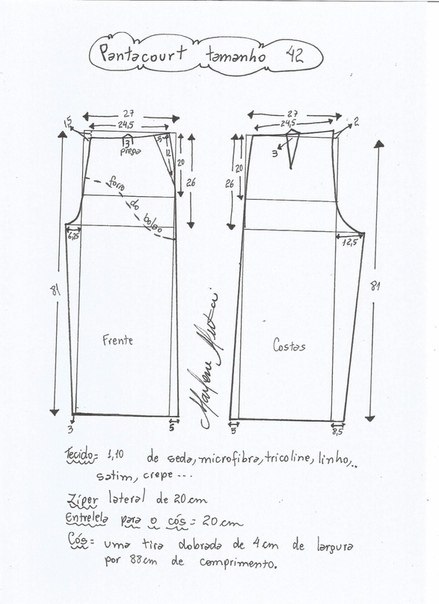 Pantacourt tamanho 42
27
24,5
1,5
3
prega
5
12
20
26
forro
do
bolso
6,25
81
Frente
3
5
27
24,5
2
3
20
26
12,5
81
Costas
5
8,5
Marlene Mukai
Tecido= 1,10 de seda, microfibra, tricoline, linho,..
satim, crepe ...
Zíper lateral de 20cm
Entretela para o cós = 20cm
Cós= uma tira dobrada de 4cm de largura
por 88cm de comprimento.